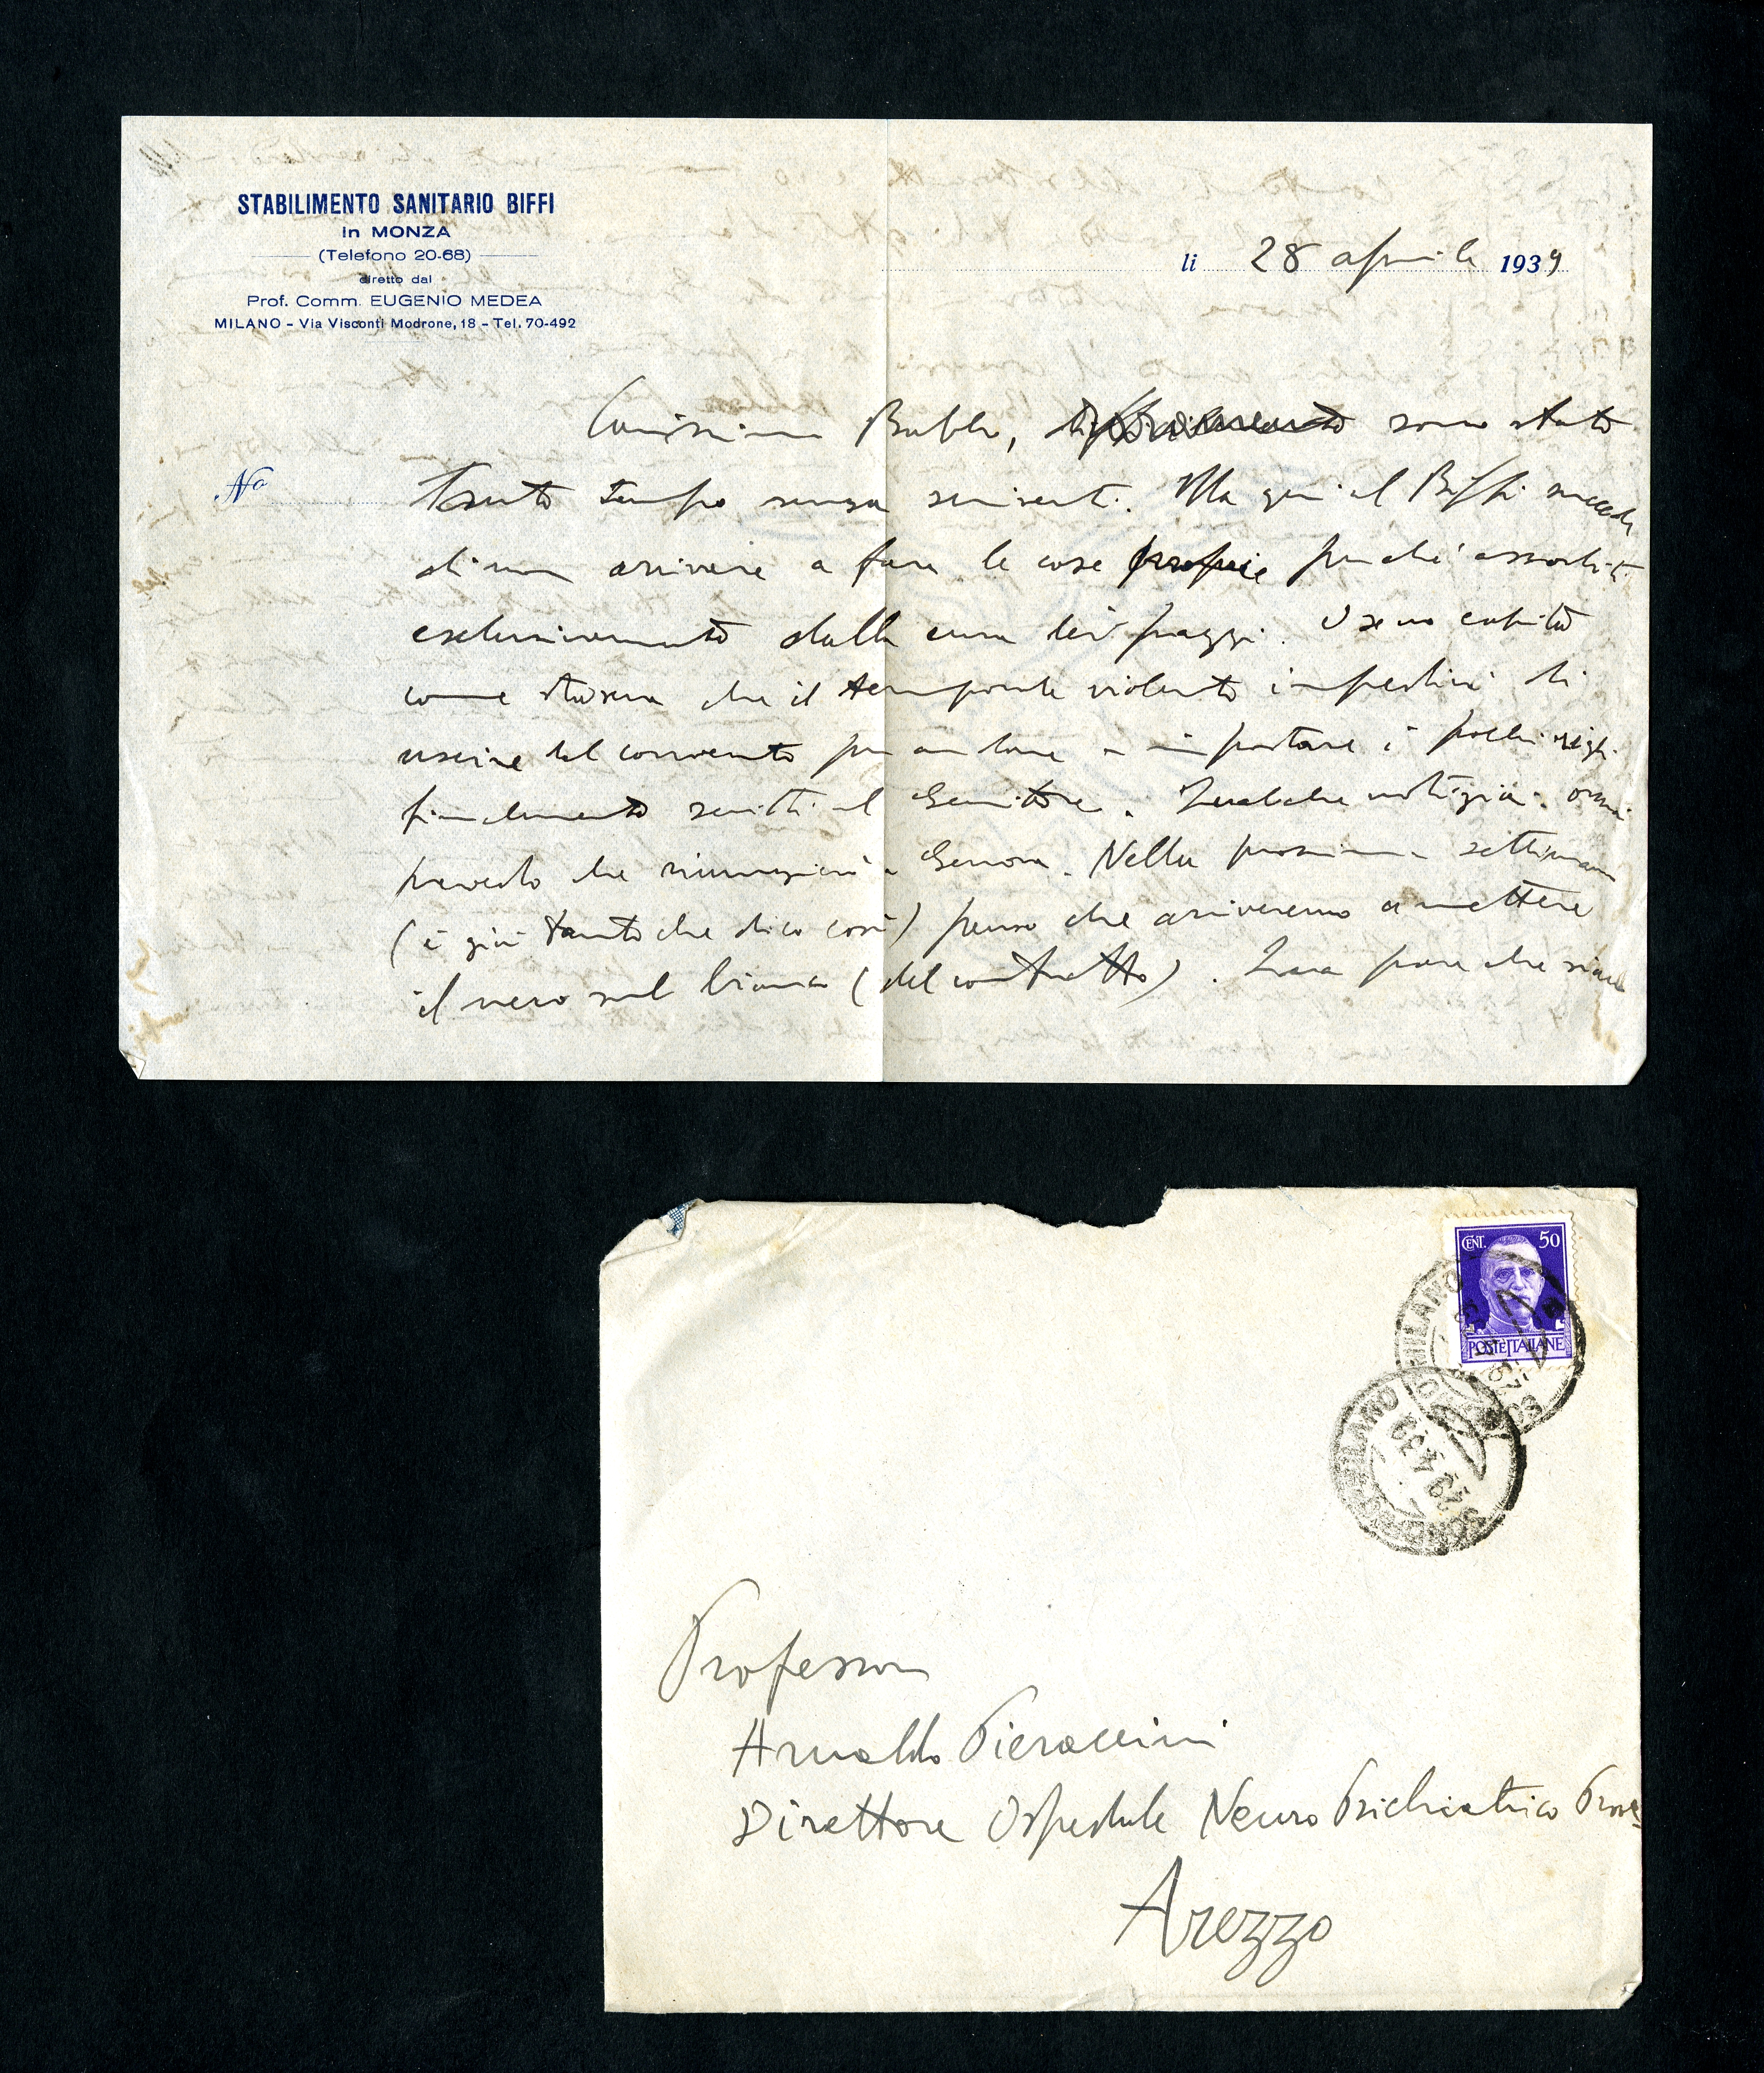 STABILIMENTO SANITARIO BIFFI
in MONZA
(Telefono 20-68)
diretto dal
Prof. Comm. EUGENIO MEDEA
MILANO - Via Visconti Modrone, 18 - Tel. 70-492
li 28 aprile 1939
No
Carissimo Babbo, sono stato
tanto tempo senza scriverti. Ma qui al Biffi succede
di non arrivare a fare le cose proprie perché assorbiti
esclusivamente dalla cura dei pazzi. O se no capita
come stasera che il temporale violento impedisca di
uscire dal convento per andare a impostare i pochi righi
finalmente scritti al Genitore. Qualche notizia: ormai
prevedo che rinunzierò a Genova. Nella prossima settimana
(è già tanto che dico così) penso che arriveremo a mettere
il nero sul bianco (del contratto). pare che
CENT. 50
POSTE ITALIANE
MILANO
MILANO
29 4 39
Professor
Arnaldo Pieraccini
Direttore Ospedale Neuro Psichiatrico Prov.
Arezzo